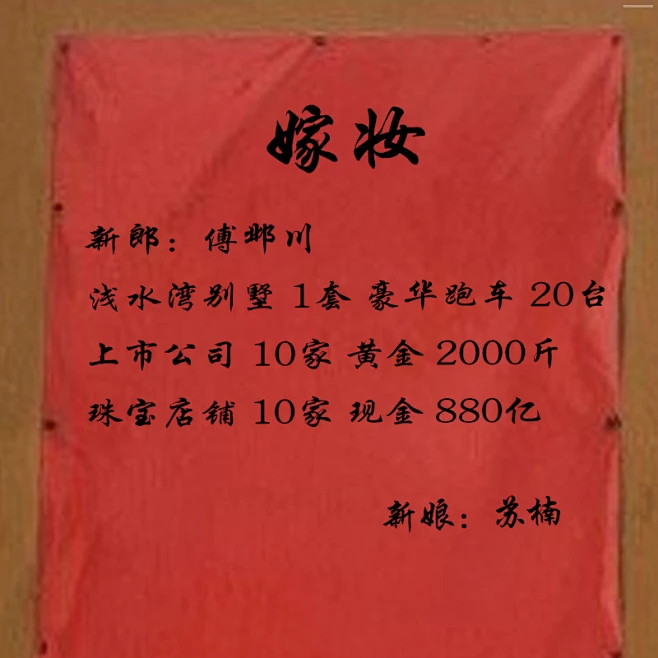 嫁妆
新郎：傅邺川
浅水湾别墅 1套 豪华跑车 20台
上市公司 10家 黄金 2000斤
珠宝店铺 10家 现金 880亿
新娘：苏楠